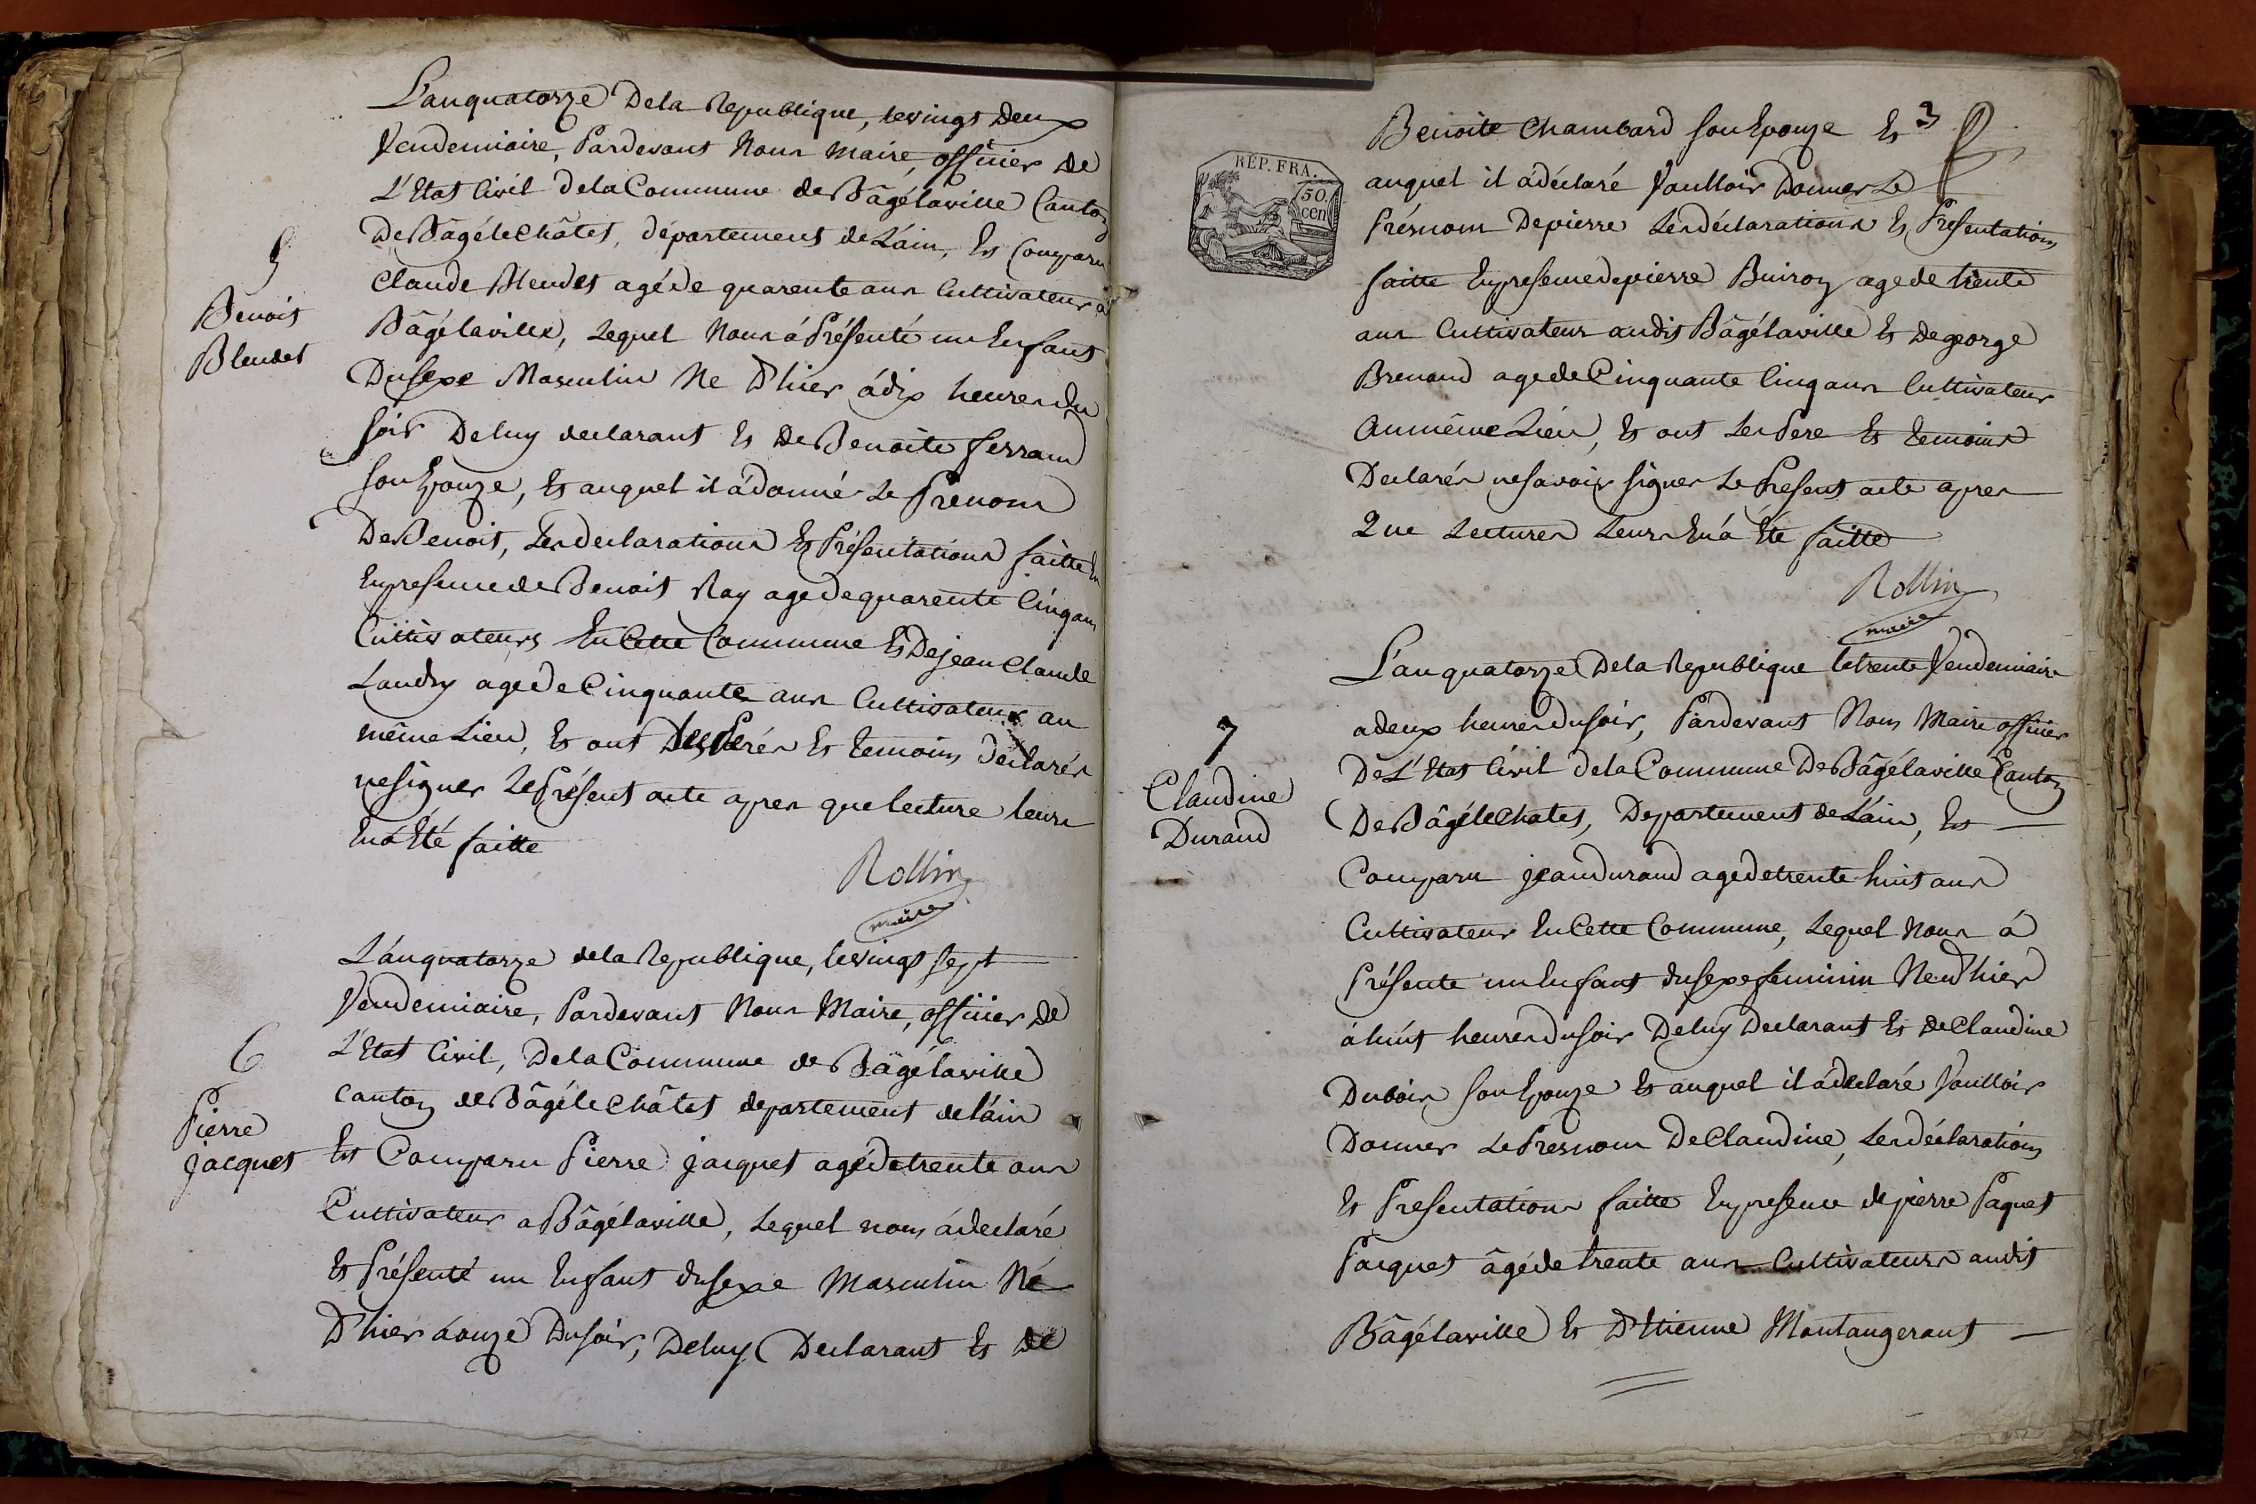 5
Benoit
Blendet
L'an quatorze De la Republique, le vingt Deux
Vendemiaire, Pardevant Nous Maire, officier de
L'Etat Civil de la Commune de Bâgélaville Canton
De Bâgé le Châtel, département de L'ain, Est Comparu
Claude Blendet agé de quarente ans Cultivateur à
Bâgélaville, Lequel Nous á Présenté un Enfant
Du sexe Masculin Ne D'hier á dix heures du
soir De luy declarant Et De Benoite ferrand
son Epouze, Et auquel il á donné Le Prenom
De Benoit, Les declarations Et Présentations faitte
En presence de Benoit Ray age de quarente Cinq ans
Cultivateurs En Cette Commune Et De jean Claude
Landry age de Cinquante ans Cultivateur au
même Lieu, Et ont Les Perés Et temoins Déclarés
ne signer Le Présent acte apres que lecture leurs
En á Eté faitte
Rollin
maire
6
Pierre
jacquet
L'an quatorze de la Republique, le vingt sept
Vendemiaire, Pardevant Nous Maire, officier de
L'Etat Civil, De la Commune de Bâgélaville
canton de Bâgé le Châtel departement de l'ain
Est Comparu Pierre jacquet agé de trente ans
Cultivateur a Bâgélaville, Lequel nous á declaré
Et Présenté un Enfant du sexe Masculin Né
D'hier á onze Du soir, De luy Declarant Et De
3
REP. FRA.
50.
cen
Benoite Chambard son Epouze Et
auquel il á déclaré Voulloir Donner Le
Présnom De pierre Les déclarations Et Presentations
faitte En presence de pierre Buiron age de trente
ans Cultivateur audit Bâgélaville Et De george
Brenaud age de Cinquante Cinq ans Cultivateur
Au même Lieu, Et ont Les Pere Et temoins
Declarés ne savoir signer Le Présent acte apres
Que Lectures Leurs En á Eté faitte
Rollin
maire
7
Claudine
Durand
L'an quatorze De la Republique le trente Vendemiaire
a deux heures du soir, Pardevant Nous Maire officier
De L'Etat Civil de la Commune De Bâgélaville Canton
De Bâgé le Chatel, Departement de L'ain, Est
Comparu jean durand age de trente huit ans
Cultivateur En Cette Commune, Lequel Nous á
Présente un Enfant du sexe feminin Ne D'hier
á huit heures du soir De luy Declarant Et de Claudine
Dubois son Epouze Et auquel il á déclaré Voulloir
Donner Le Presnom De Claudine, Les déclarations
Et Presentations faitte En presence de pierre Paquet
Pacquet âgé de trente ans Cultivateurs audit
Bâgélaville Et D'Etienne Montangerant